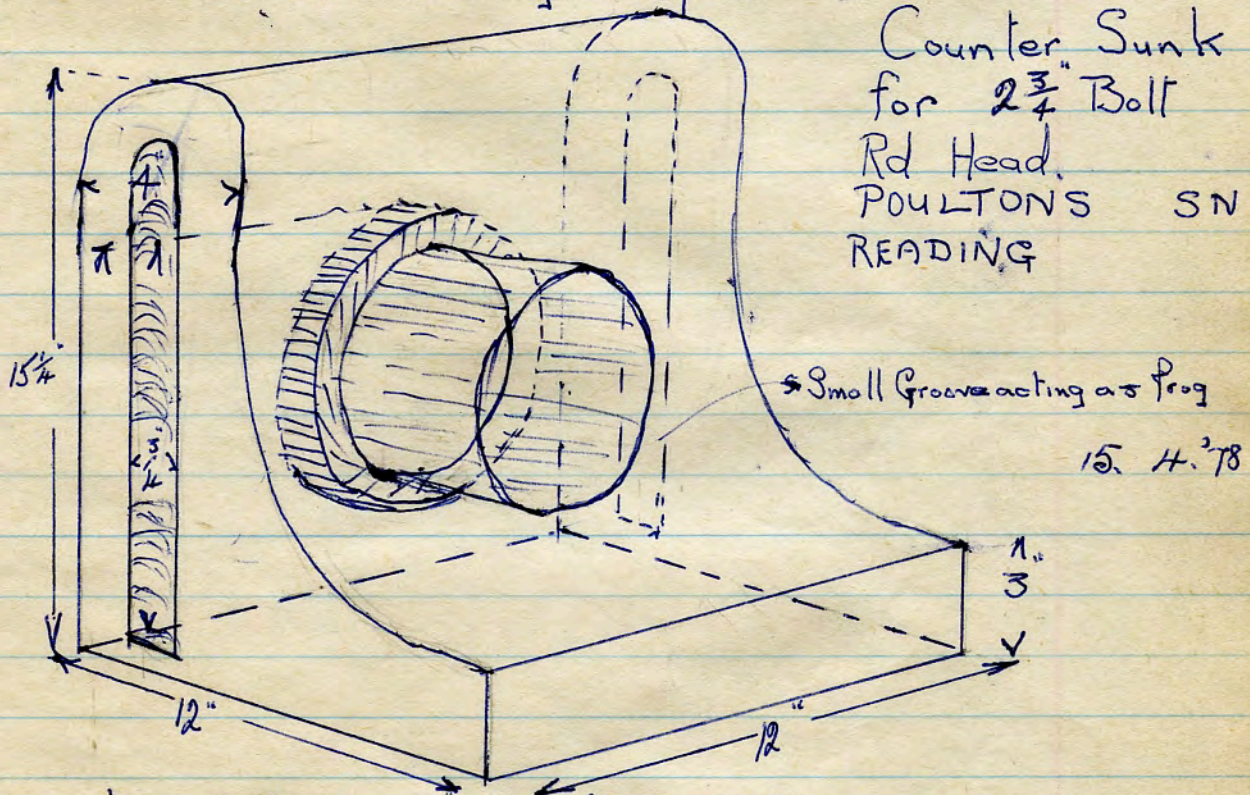 Counter Sunk
for 2 3/4" Bolt
Rd Head.
POULTONS SN
READING
4
15 1/4"
3/4"
Small Groove acting as frog
15. 4. '78
3"
12"
12"